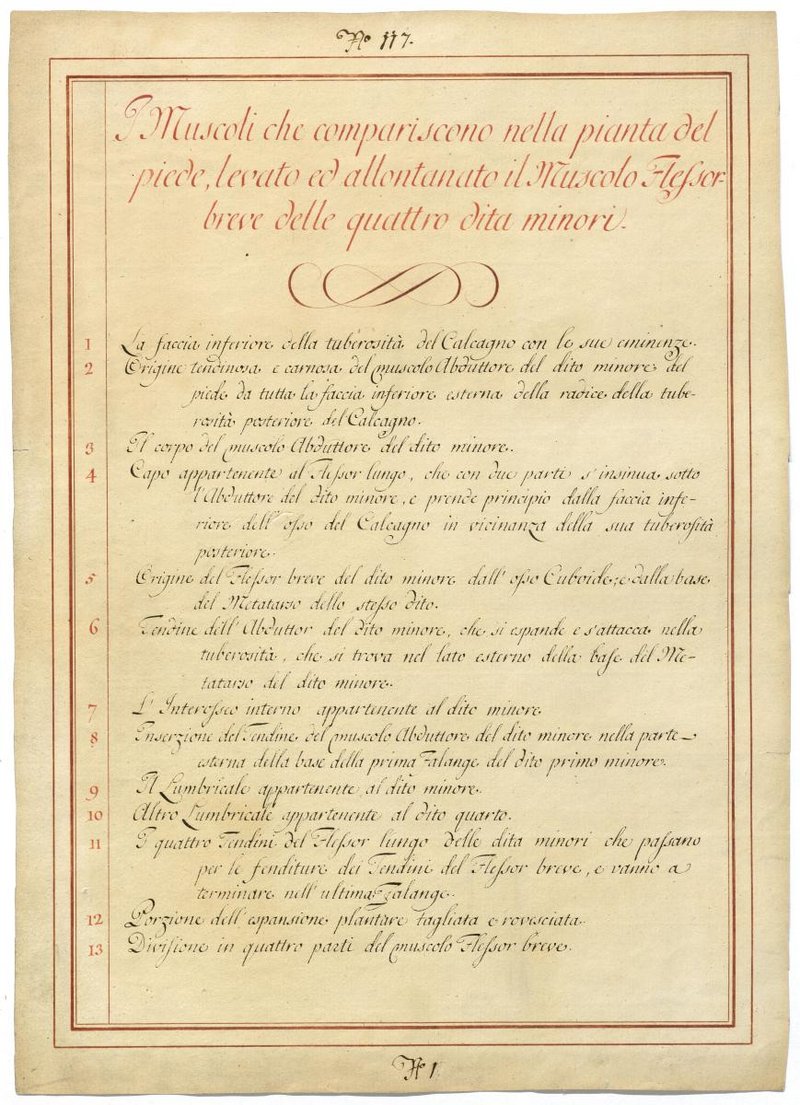 No 117.
I Muscoli che compariscono nella pianta del
piede, levato ed allontanato il Muscolo Flessor
breve delle quattro dita minori.
1 La faccia inferiore della tuberosità del Calcagno con le sue eminenze.
2 Origine tendinosa e carnosa del muscolo Abduttore del dito minore del
piede da tutta la faccia inferiore esterna della radice della tube-
rosità posteriore del Calcagno.
3 Il corpo del muscolo Abduttore del dito minore.
4 Capo appartenente al Flessor lungo, che con due parti s'insinua sotto
l'Abduttore del dito minore, e prende principio dalla faccia infe-
riore dell'osso del Calcagno in vicinanza della sua tuberosità
posteriore.
5 Origine del Flessor breve del dito minore dall'osso Cuboide, e dalla base
del Metatarso dello stesso dito.
6 Tendine dell'Abduttor del dito minore, che si espande e s'attacca nella
tuberosità, che si trova nel lato esterno della base del Me-
tatarso del dito minore.
7 L'Interosseo interno appartenente al dito minore
8 Inserzione del Tendine del muscolo Abduttore del dito minore nella parte
esterna della base della prima Falange del dito primo minore.
9 Il Lumbricale appartenente al dito minore.
10 Altro Lumbricale appartenente al dito quarto.
11 I quattro Tendini del Flessor lungo delle dita minori che passano
per le fenditure dei Tendini del Flessor breve, e vanno a
terminare nell'ultima Falange.
12 Porzione dell'espansione plantare tagliata e rovesciata.
13 Divisione in quattro parti del muscolo Flessor breve.
No 1